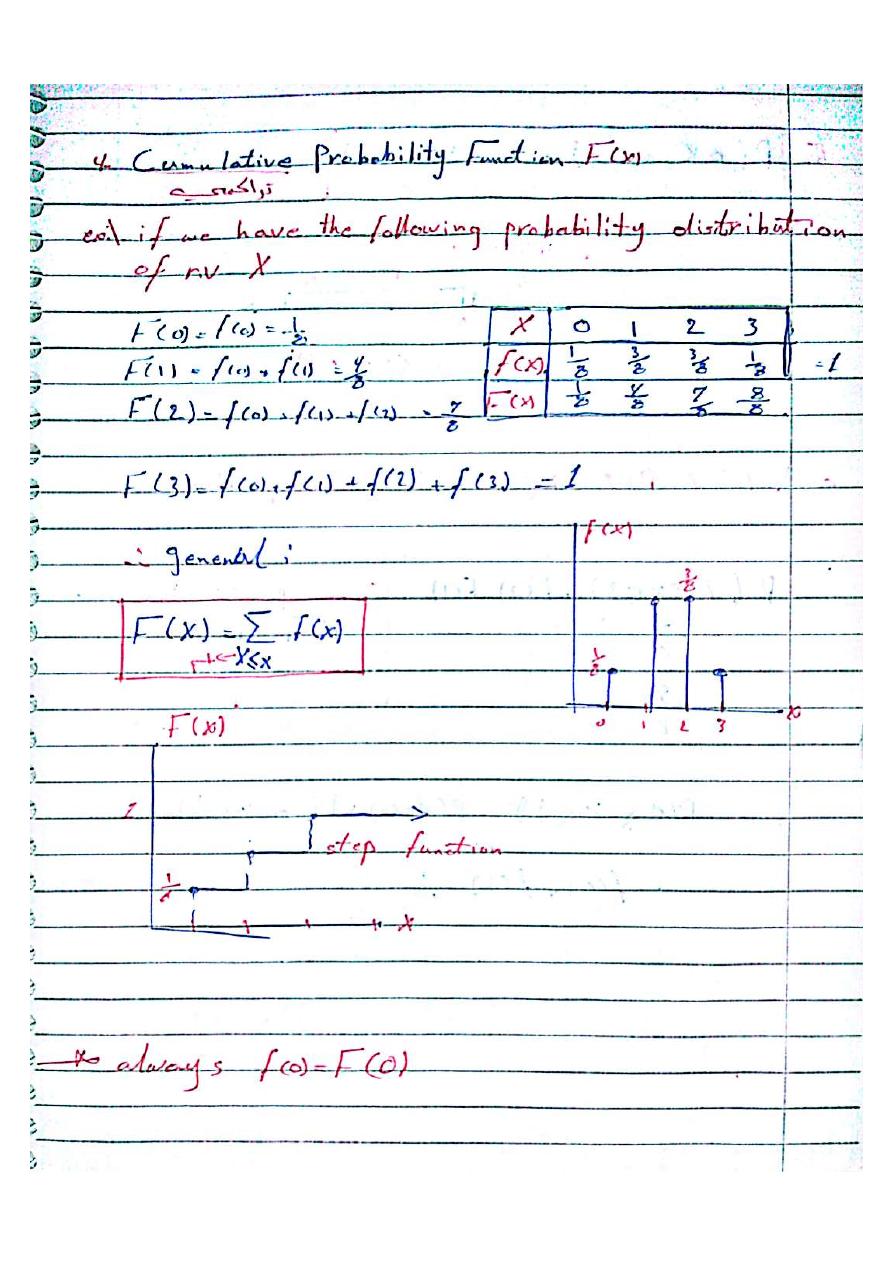 4. Cumulative Probability Function F(x)
تراكمي
ex:\ if we have the following probability distribution
of r.v X
F(0) = f(0) = 1/8
F(1) = f(0) + f(1) = 4/8
F(2) = f(0) + f(1) + f(2) = 7/8
X 0 1 2 3
f(x) 1/8 3/8 3/8 1/8 = 1
F(x) 1/8 4/8 7/8 8/8
F(3) = f(0) + f(1) + f(2) + f(3) = 1
∴ general :
F(X) = Σ f(x)
X≤x
f(x)
3/8
1/8
0 1 2 3 x
F(x)
1
step function
1/8
X
always f(0) = F(0)